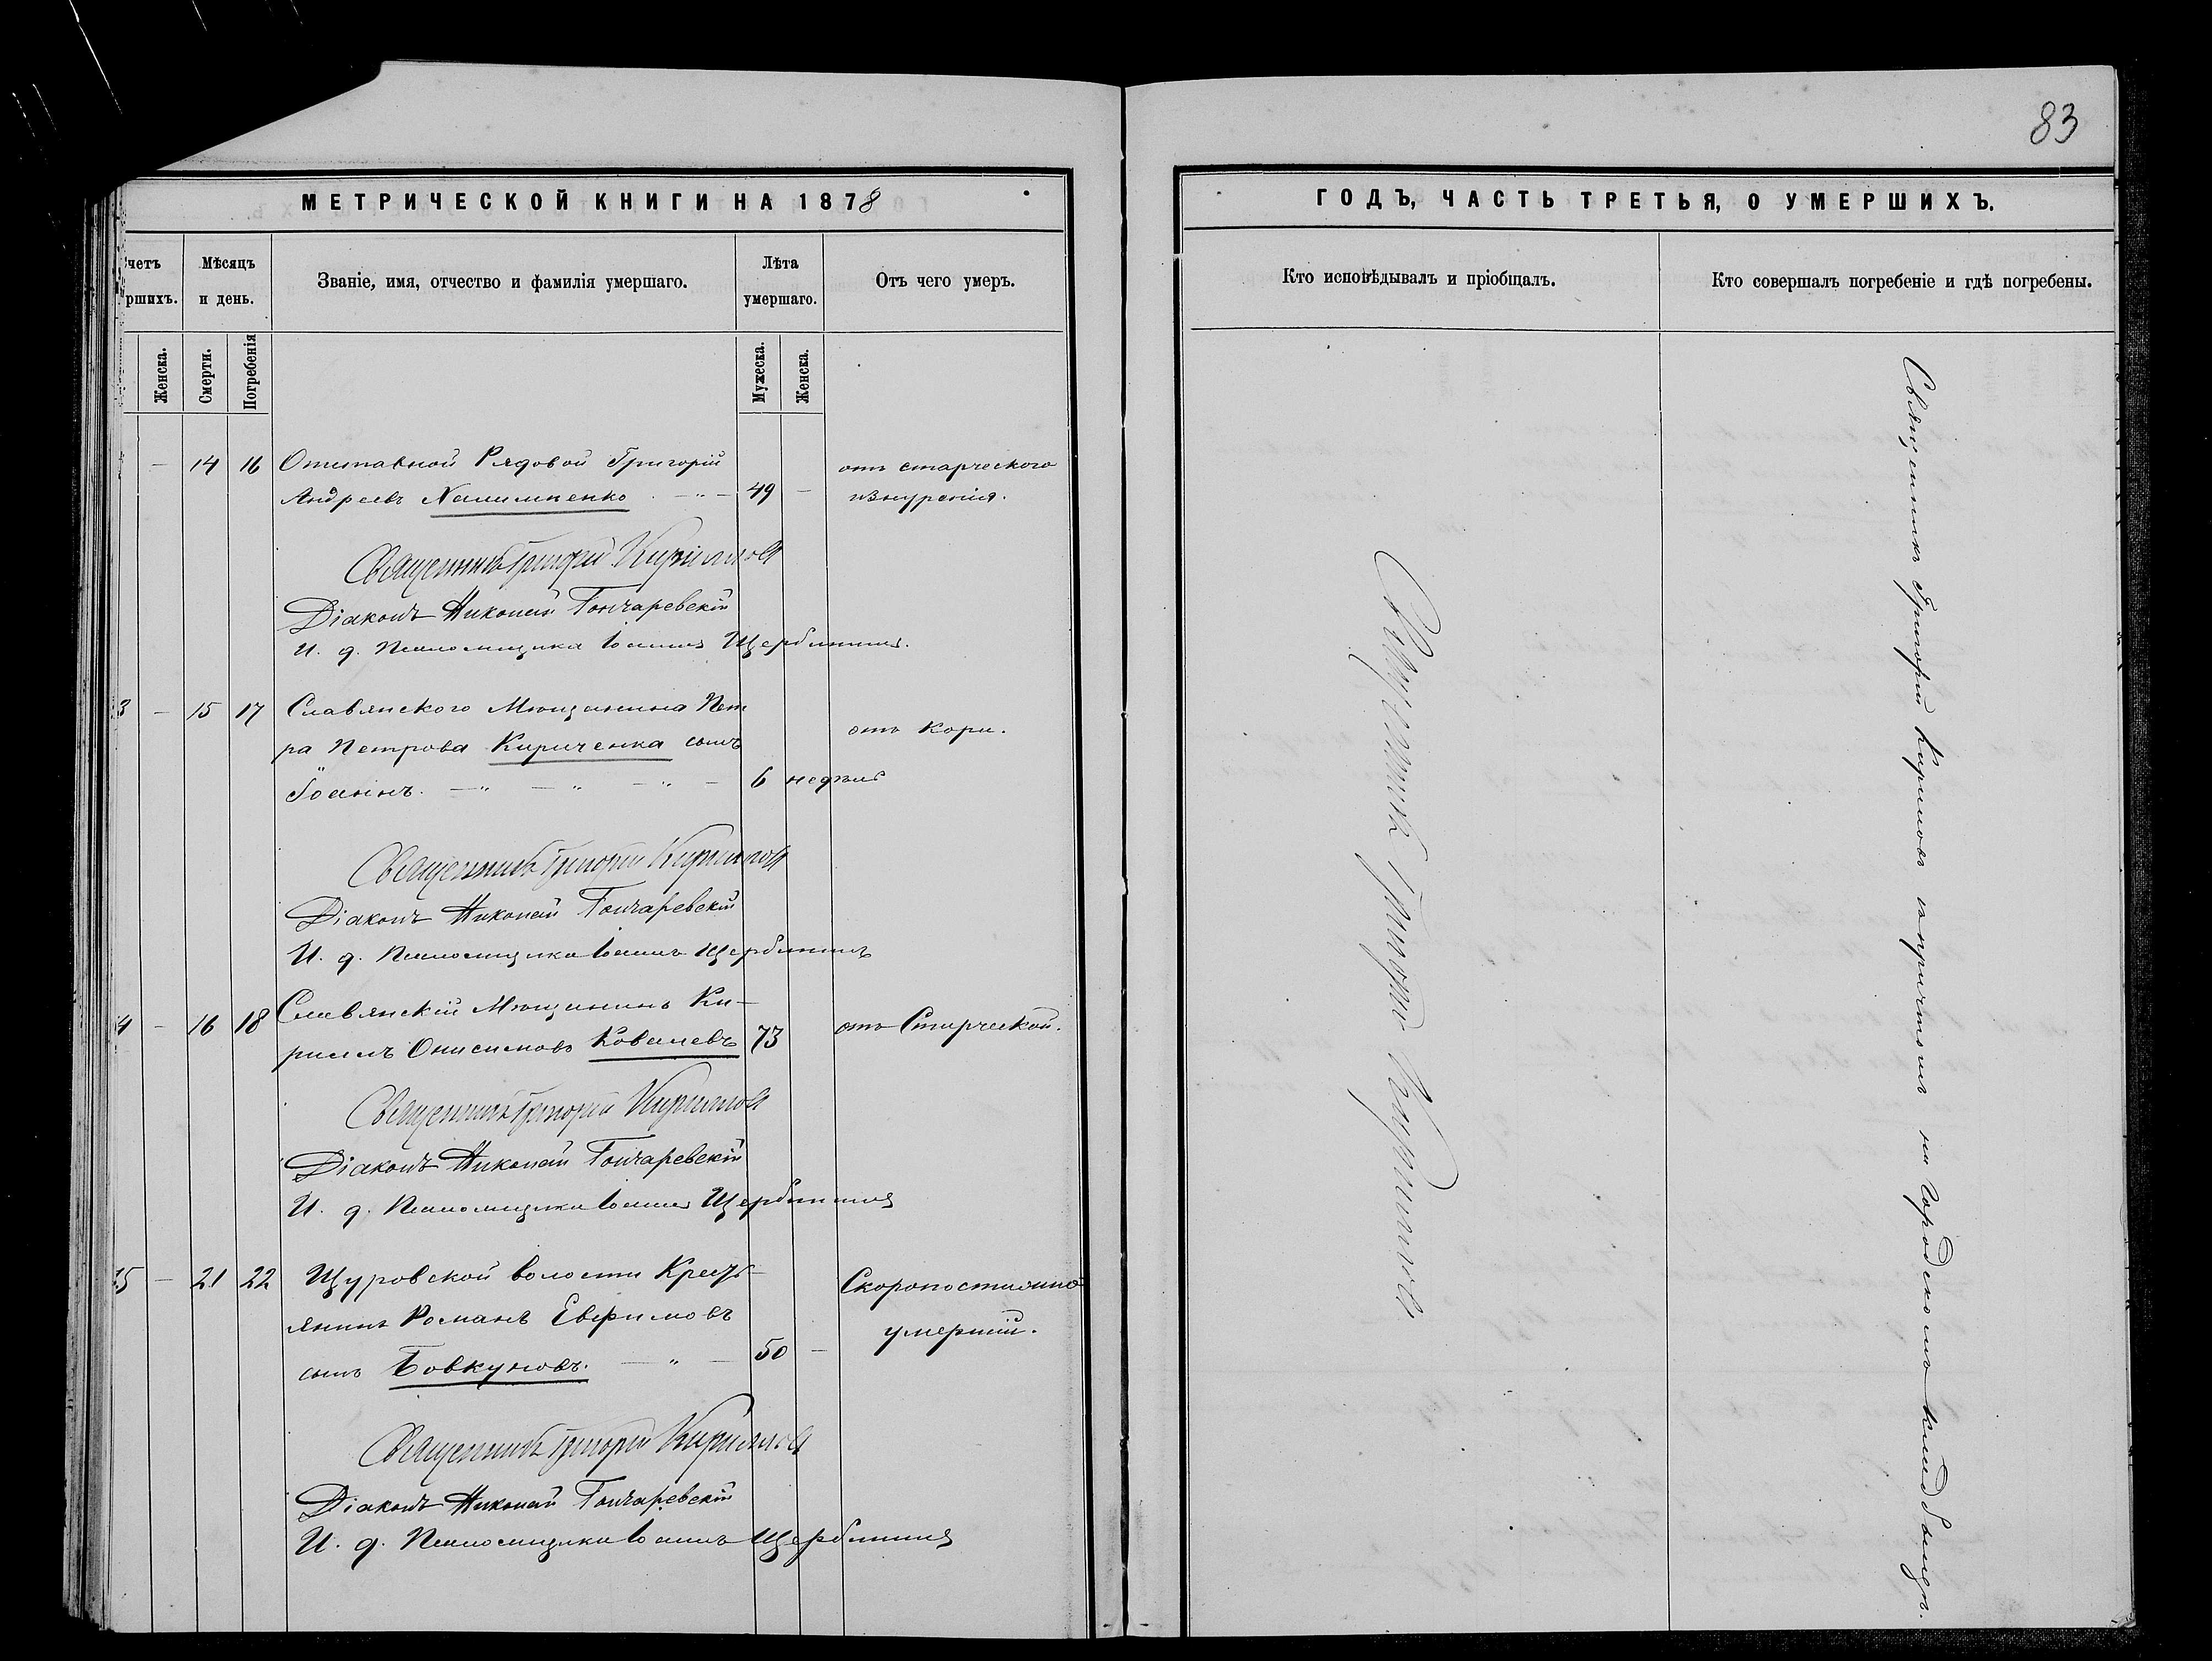 83
МЕТРИЧЕСКОЙ КНИГИ НА 1878
ГОДЪ, ЧАСТЬ ТРЕТЬЯ, О УМЕРШИХЪ.
четъ
ршихъ.
Мѣсяцъ
и день.
Званіе, имя, отчество и фамилія умершаго.
Лѣта
умершаго.
Отъ чего умеръ.
Кто исповѣдывалъ и пріобщалъ.
Кто совершалъ погребеніе и гдѣ погребены.
Женска.
Смерти.
Погребенія
Мужеска.
Женска.
— 14 16 Отставной Рядовой Григорій отъ старческаго
Андреевъ — " — 49 — изнуренія.
Священникъ Григорій Кириловъ
Діаконъ Николай Гончаревскій
И. д. Псаломщика Іоаннъ Щербининъ.
3 — 15 17 Славянского Мѣщанина Пет
ра Петрова Кириченка сынъ отъ Кори.
Іоаннъ. — " — " — " — 6 недѣль
Священникъ Григорій Кириловъ
Діаконъ Николай Гончаревскій
И. д. Псаломщика Іоаннъ Щербининъ
4 — 16 18 Славянскій Мѣщанинъ Ки-
рилъ Онисимовъ Ковалевъ 73 отъ Старческой.
Священникъ Григорій Кириловъ
Діаконъ Николай Гончаревскій
И. д. Псаломщика Іоаннъ Щербининъ
5 — 21 22 Щуровской волости Кресть- Скоропостижно
янинъ Романъ Евфимовъ умершій.
сынъ Бовкуновъ. — " — 50 —
Священникъ Григорій Кириловъ
Діаконъ Николай Гончаревскій
И. д. Псаломщика Іоаннъ Щербининъ
Священникъ Григорій Кириловъ
Священникъ Григорій Кириловъ съ причтомъ на Городскомъ кладбищѣ.